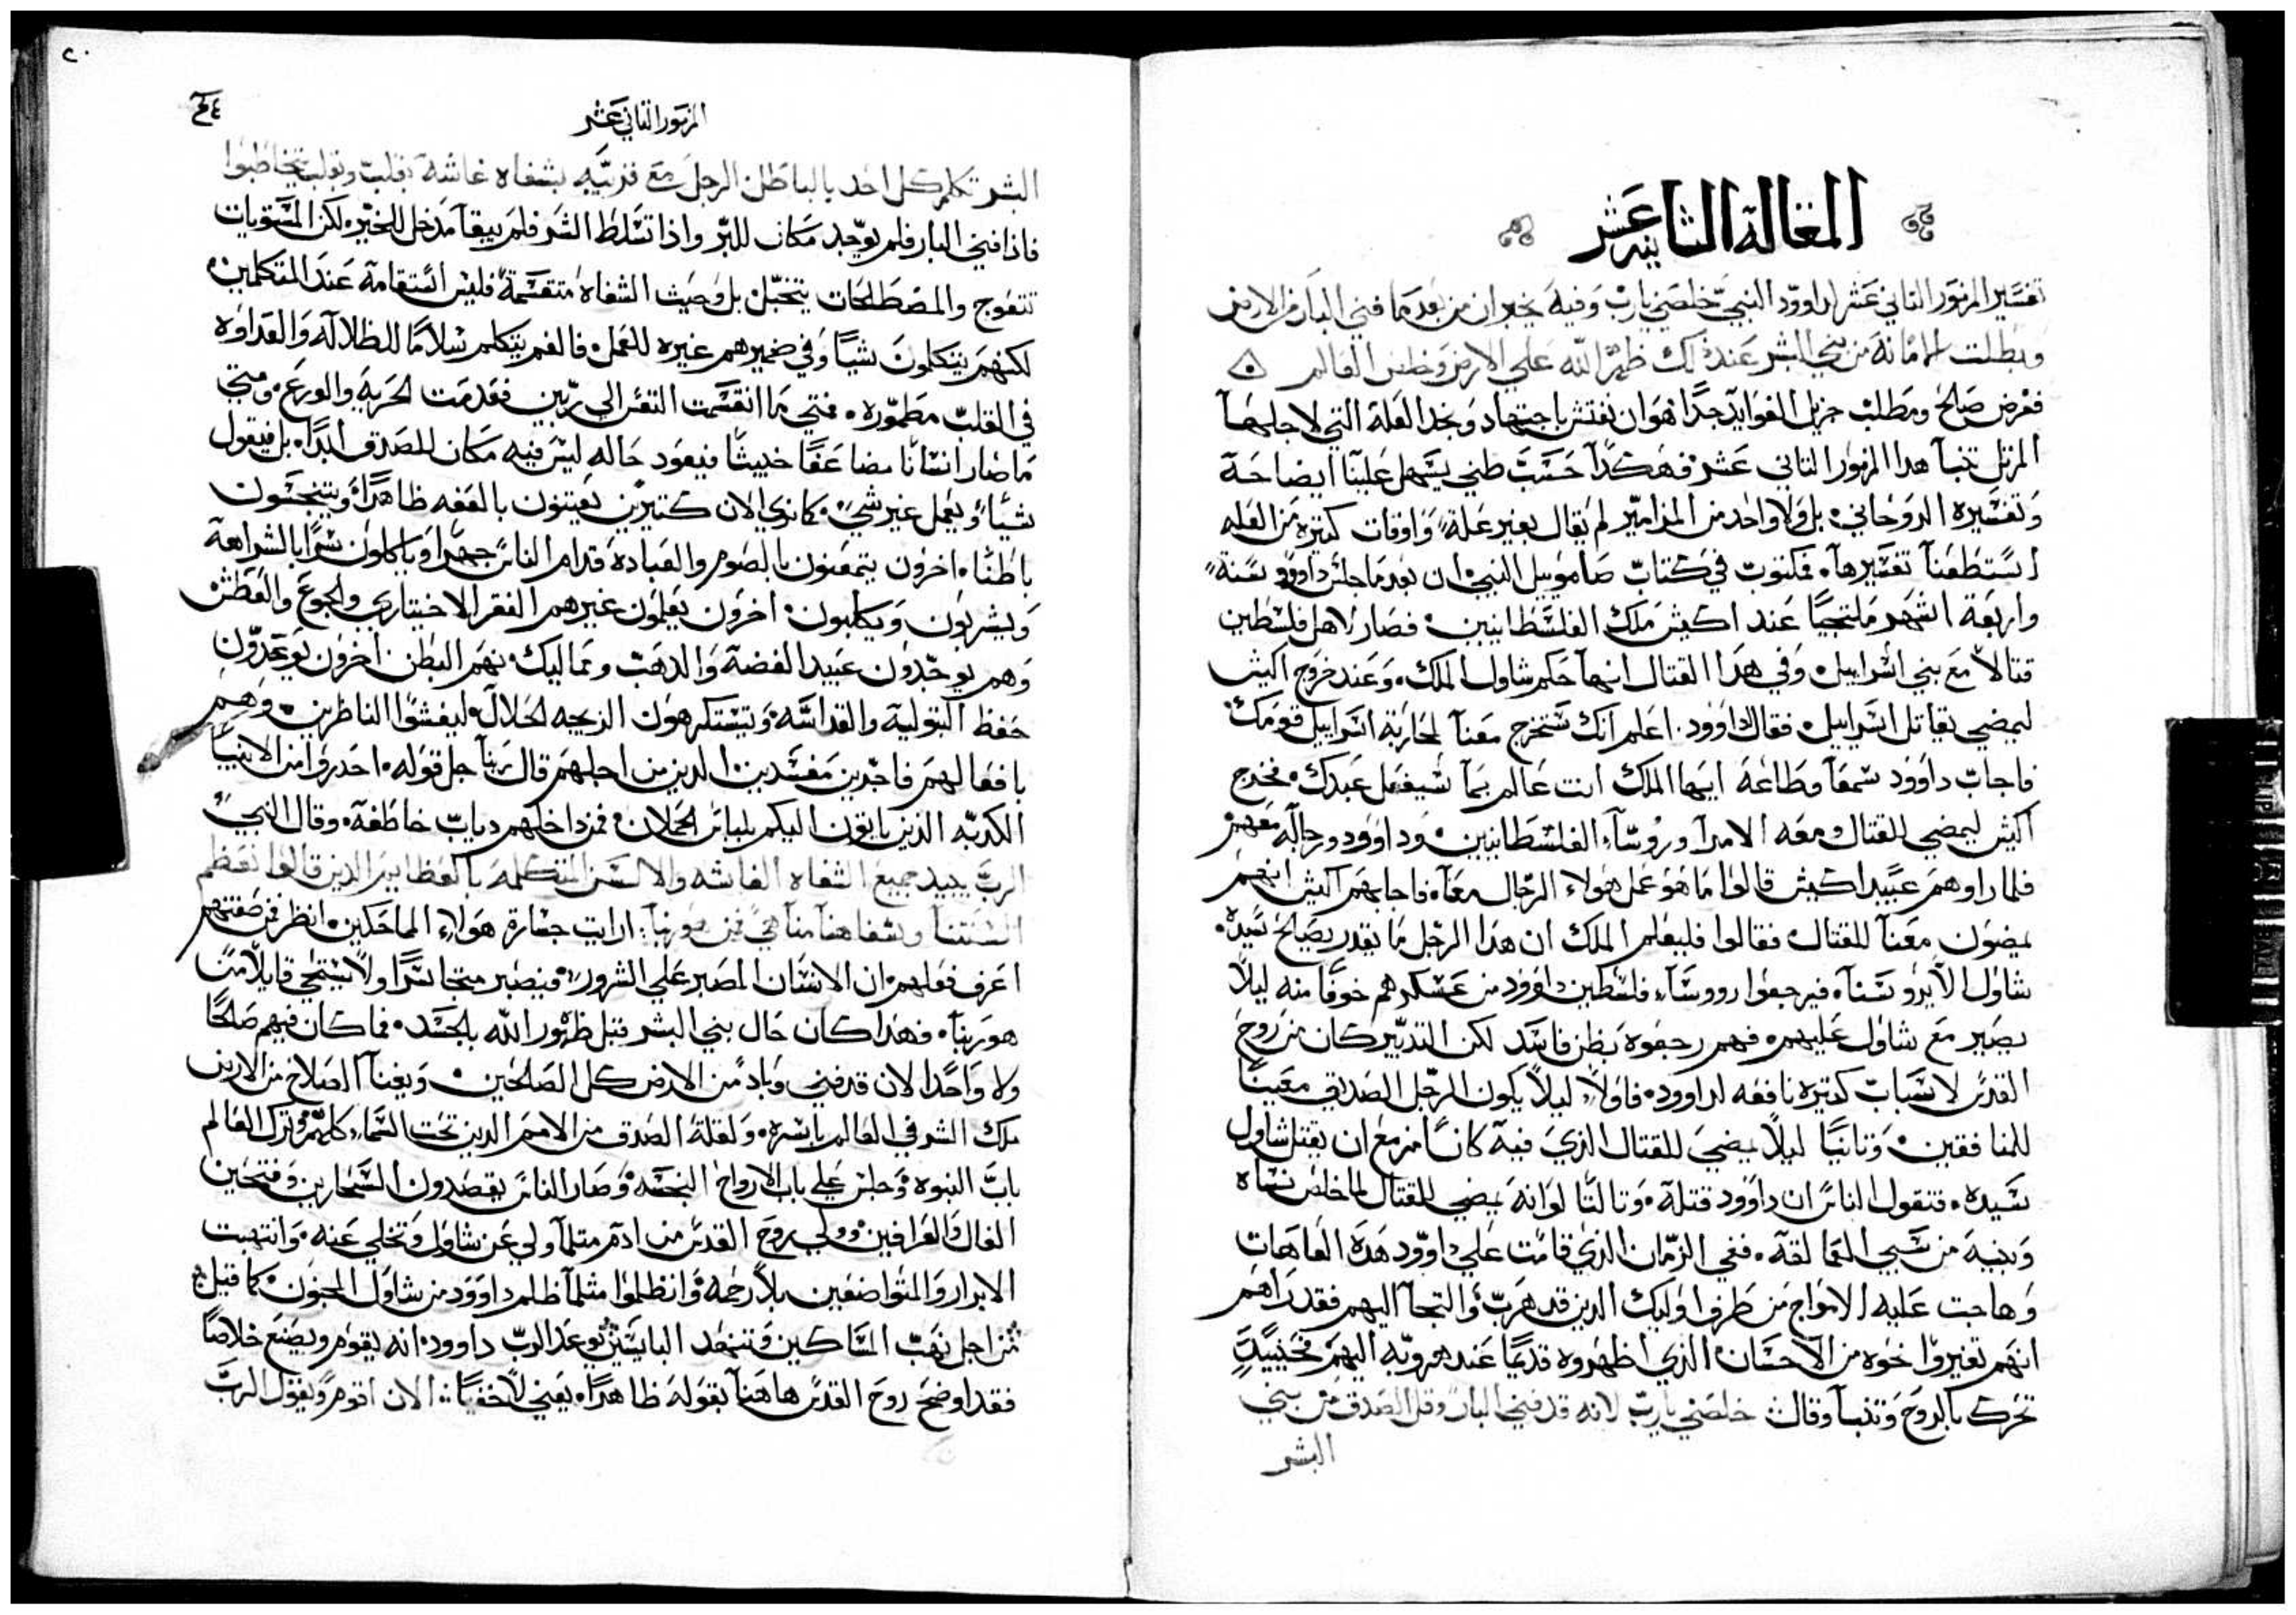 المقالة الثانيه عشر
تفسير المزمور الثاني عشر لداوود النبي خلصني يارب وفيه يخبر ان من بعد ما فني البار من الارض
وبطلت الامانة من بني البشر عند ذلك ظهر الله علي الارض وخلص العالم
ففرض صالح ومطلب جزيل الفوايد جدًا هو ان نفتش باجتهاد ونجد العلة التي لاجلهآ
المرتل تنبآ هدا المزمور التاني عشر فهكدآ حسب ظني يسهل علينآ ايضاحة
وتفسيره الروحاني بل ولا واحد من المزامير لم يقال بغير علة واوقات كتيره من العله
استطعنآ تفسيرهآ فمكتوب في كتاب صاموييل النبي ان بعد ما جلس داوود سنة
واربعة اشهر ملتجيًا عند اكيش ملك الفلسطانيين فصار لاهل فلسطين
قتالاً مع بني اسراييل وفي هدا القتال انهآ حكم شاول الملك وعند خروج اكيش
ليمضي يقاتل اسراييل فقال لداوود اعلم انك ستخرج معنآ لمحاربة اسراييل قومك
فاجاب داوود سمعآ وطاعة ايها الملك انت عالم بمآ سيفعل عبدك فخرج
اكيش ليمضي للقتال ومعه الامرآ وروسآء الفلسطانيين وداوود ورجاله معهم
فلما راوهم عبيد اكيش قالوا ما هو عمل هولاء الرجال معآ فاجابهم اكيش انهم
يمضون معنآ للقتال فقالوا فليعلم الملك ان هدا الرجل ما يقدر يصالح سيده
شاول الا بروسنآ فيرجعوا رووسآء فلسطين داوود من عسكرهم خوفًا منه ليلاً
يصير مع شاول عليهم فهم رجعوه بظن فاسد لكن التدبير كان من روح
القدس لاسباب كتيره نافعه لداوود فاولاً ليلاً يكون الرجل الصديق معينًا
للمنافقين وتانيًا ليلاً يمضي للقتال الذي فيه كان مزمع ان يقتل شاول
سيده فتقول الناس ان داوود قتلة وتالتًا لو انه يمضي للقتال لما خلص نساه
وبنيه من سبي العمالقة ففي الزمان الذي قامت علي داوود هذه العاهات
وهاجت عليه الامواج من طرف اوليك الدين قد هرب والتجآ اليهم فقد راهم
انهم تغيروا اخوه من الاحسان الذي اظهروه قديمًا عند هروبه اليهم فحينيدٍ
تحرك بالروح وتنبآ وقال خلصني يارب لانه قد فني البار وقل الصدق من بني
البشر
المزمور الثاني عشر
البشر تكلم كل احد بالباطل الرجل مع قريبه بشفاه غاشه بقلب وبقلب تخاطبوا
فاذا فني البار فلم يوجد مكان للبر واذا تسلط الشر فلم يبقآ مدخل للخير لكن المستويات
تتعوج والمصطلحات يتخبل بل وحيث الشفاه متقسمة فليس استقامة عند المتكلمين
لكنهم يتكلمون شيًا وفي ضميرهم غيره للعمل فالفم يتكلم سلامًا للظلالة والعداوه
في القلب مطموره فمتي ما انقسمت النفس الي ربين فقد مت الحرية والورع ومتي
ما صار انسانًا مضاعفًا خبيثًا فيعود حاله ليس فيه مكان للصدق ابدًا بل فيقول
شيًا ويعمل غير شي كما نري الان كتيرين يعيتون بالعفه ظاهرًا ويتنجسون
باطنًا اخرون يتمعنون بالصوم والعبادة قدام الناس جهرًا وياكلون سرًا بالشراهة
ويشربون ويكلبون اخرون يعلمون غيرهم الفقر الاختياري والجوع والعطش
وهم يوجدون عبيد الفضة والدهب ومماليك نهم البطن اخرون يوعدون
حفظ البتولية والقداسة وتيستكرهون الزيجه الحلال ليغشوا الناظرين وهم
بافعالهم فاجرين مفسدين الدين من اجلهم قال ربنآ جل قوله احدروا من الانبيآ
الكدبه الذين ياتون اليكم بلباس الحملان فمن داخلهم دياب خاطفة وقال النبي
الرب يبيد جميع الشفاه الغاشه والالسن المتكلمه بالعظايم الدين قالوا نعظم
السنتنا وشفاهنآ منآ هي فمن هو ربنآ ارايت جسارة هولاء المماحكين انظر من صفتهم
اعرف فعلهم ان الانسان المصبر علي الشرور فيصير متجاسرًا ولا يستحي قايلاً من
هو ربنآ فهدا كان حال بني البشر قبل ظهور الله بالجسد فما كان فيهم صالحًا
ولا واحدًا لان قد فني وباد من الارض كل الصالحين وبفنآ الصلاح من الارض
ملك الشر في العالم باسره ولقلة الصدق من الامم الدين تحت السمآء كلهم وترك العالم
باب النبوه وجلس علي باب الارواح النجسه وصار الناس يقصدون السحارين وفتحين
الفال والعرافين وولي روح القدس من ادم مثلمآ ولي عن شاول وتخلي عنه وانتهبت
الابرار والمتواضعين بلا رحمه وانظلموا مثلمآ ظلم داوود من شاول المجنون كما قيل
من اجل نهب المساكين وتنهد البايسين يوعد الرب داوود انه يقوم ويصنع خلاصًا
فقد اوضح روح القدس هاهنآ بقوله ظاهرًا يعني لا خفيًا الان اقوم ويقول الرب